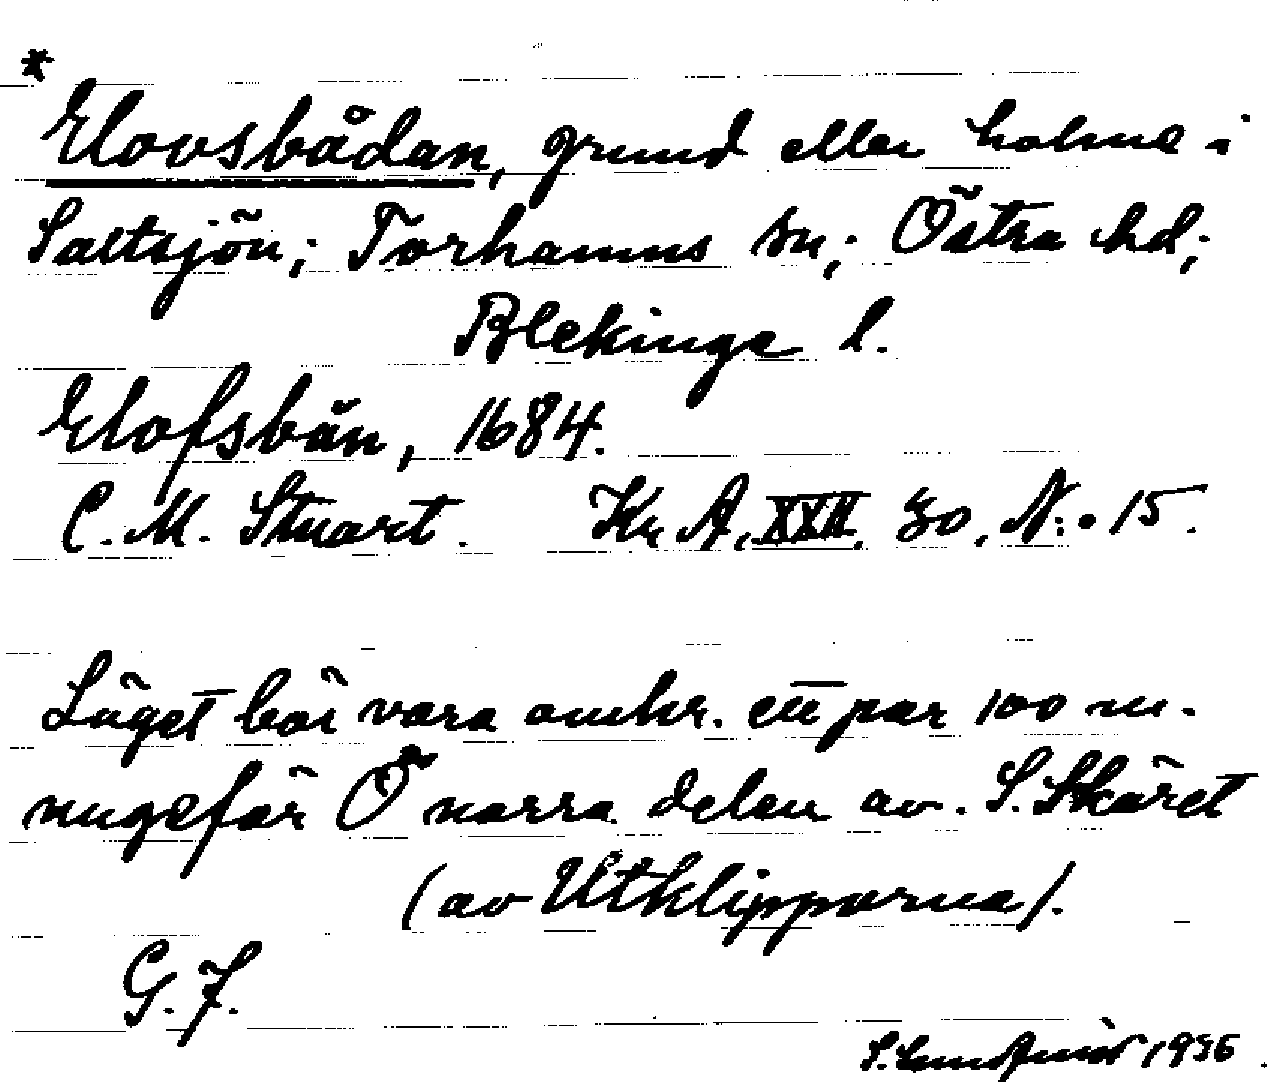 *
Elovsbådan, grund eller holme i
Saltsjön; Torhamns sn; Östra hd;
Blekinge l.
Elofsbån, 1684.
C. M. Stuart. Kr. A. XXII. 30. N:o 15.
Läget bör vara omkr. ett par 100 m.
ungefär Ö norra delen av. S. Skäret
(av Utklipporna).
G. F.
1936